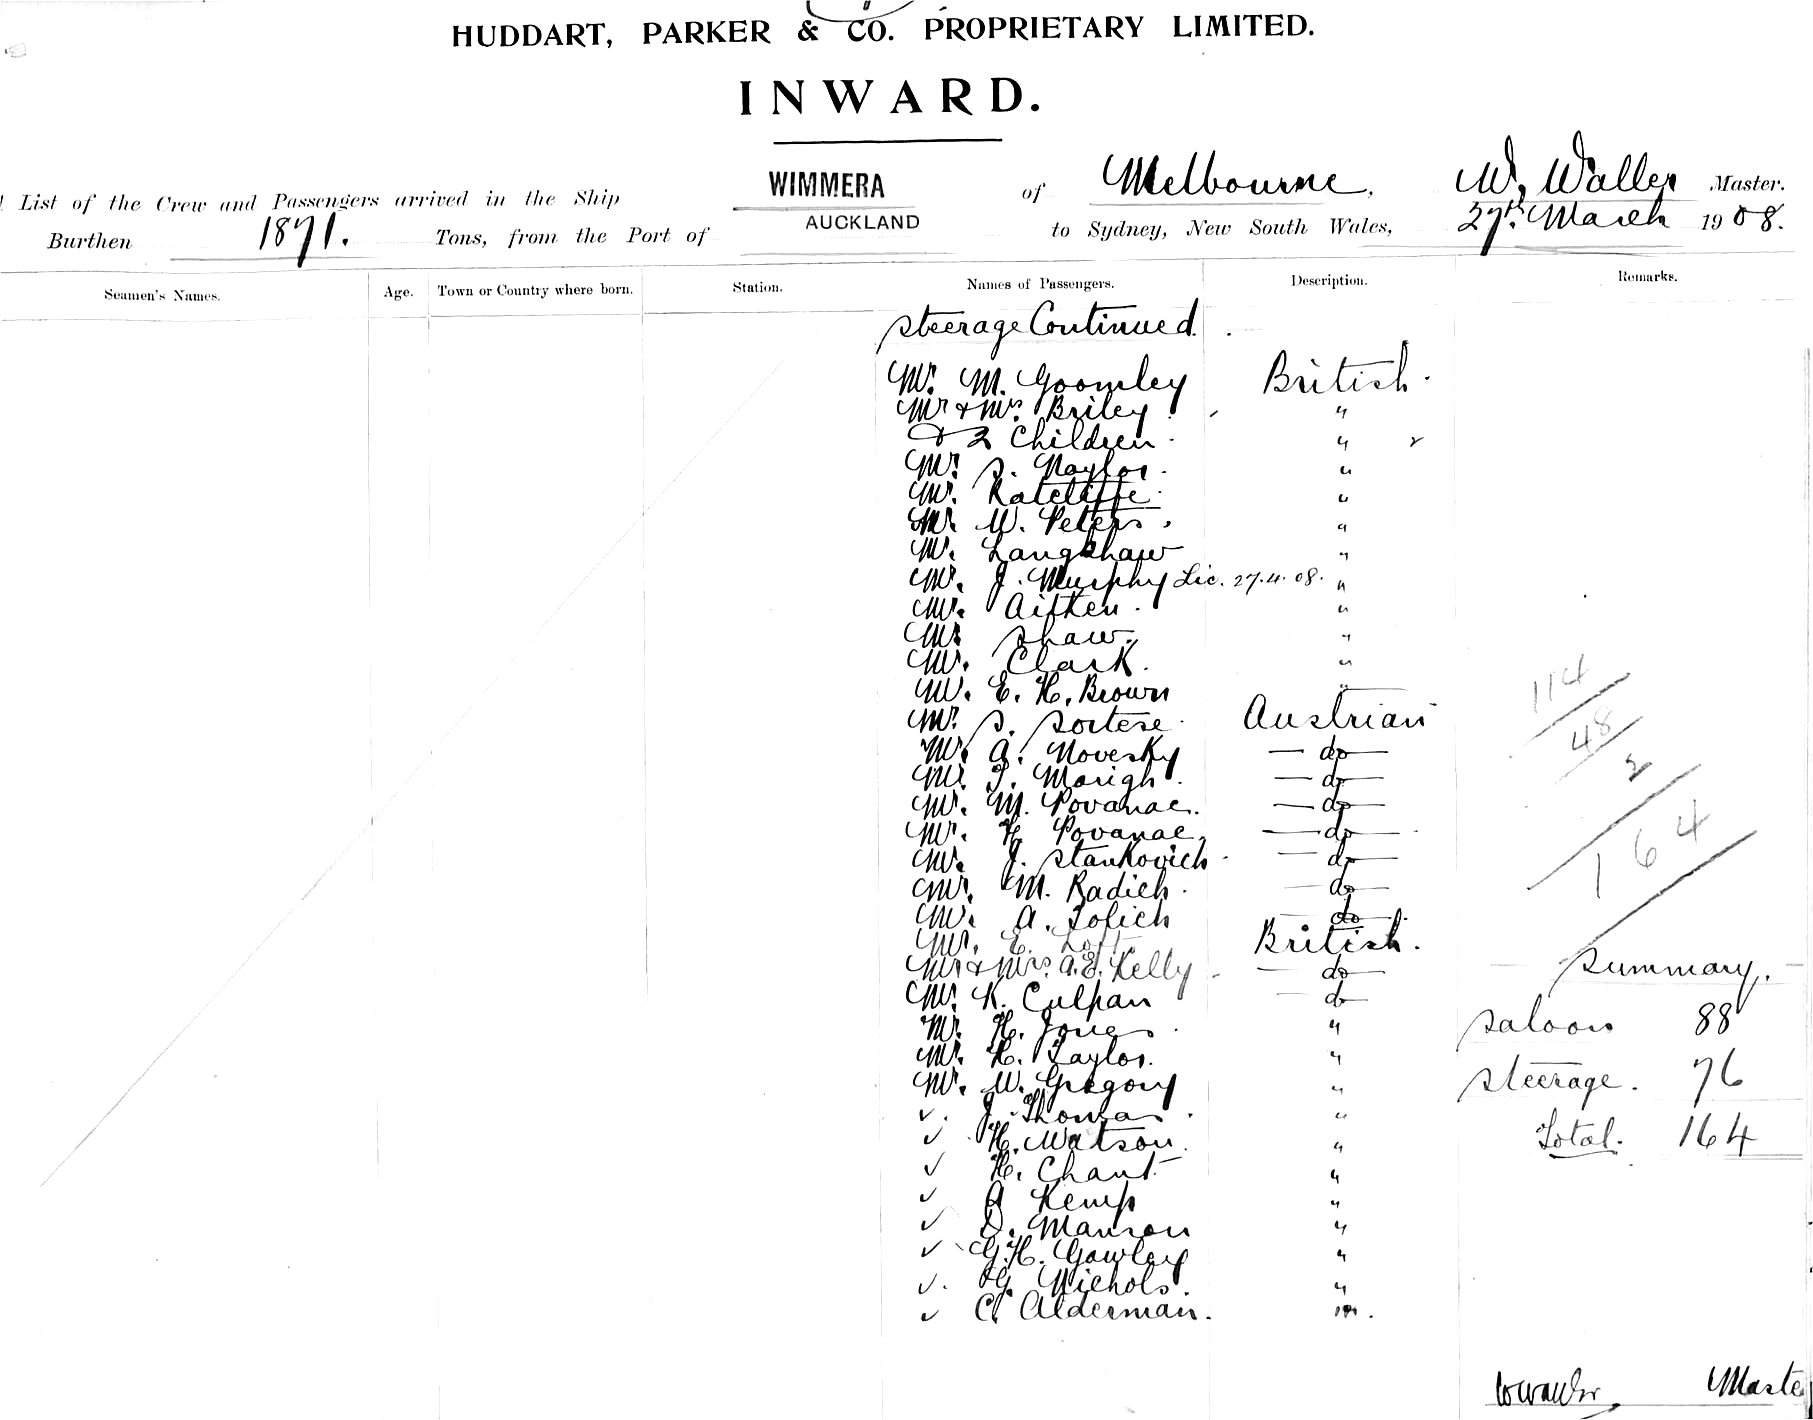 HUDDART, PARKER & CO. PROPRIETARY LIMITED.
INWARD.
List of the Crew and Passengers arrived in the Ship WIMMERA of Melbourne, W. Waller Master.
Burthen 1871. Tons, from the Port of AUCKLAND to Sydney, New South Wales, 27th March 1908.
Seamen's Names. Age. Town or Country where born. Station. Names of Passengers. Description. Remarks.
Steerage Continued.
Mr. M. Goomley British.
Mr & Mrs. Briley "
& 2 Children. "
Mr. S. Naylor. "
Mr. Ratcliffe. "
Mr. W. Peters. "
Mr. Langkhaw "
Mr. J. Murphy Lic. 27.4.08. "
Mr. Aitken. "
Mr. Shaw. "
Mr. Clark. "
Mr. E. H. Brown "
Mr. S. Sortese. Austrian
Mr. A. Novesky — do —
Mr. T. Marigh. — do —
Mr. M. Povanac. — do —
Mr. H. Povanac, — do —
Mr. J. Stankovich. — do —
Mr. M. Radich. — do —
Mr. A. Tofich — do —
Mr. E. Loft. British.
Mr & Mrs. A. E. Kelly — do —
Mr. K. Culpan — do
Mr. H. Jones. "
Mr. H. Taylor. "
Mr. W. Gregory "
✓. J. Thomas. "
✓ H. Watson. "
✓ H. Chant "
✓ A Kemp "
✓ D. Manson "
✓ G. H. Gowley "
✓. G. Nichols. "
✓ C. Alderman. "
114
48
2
164
Summary.
Saloon 88
Steerage. 76
Total. 164
Maste